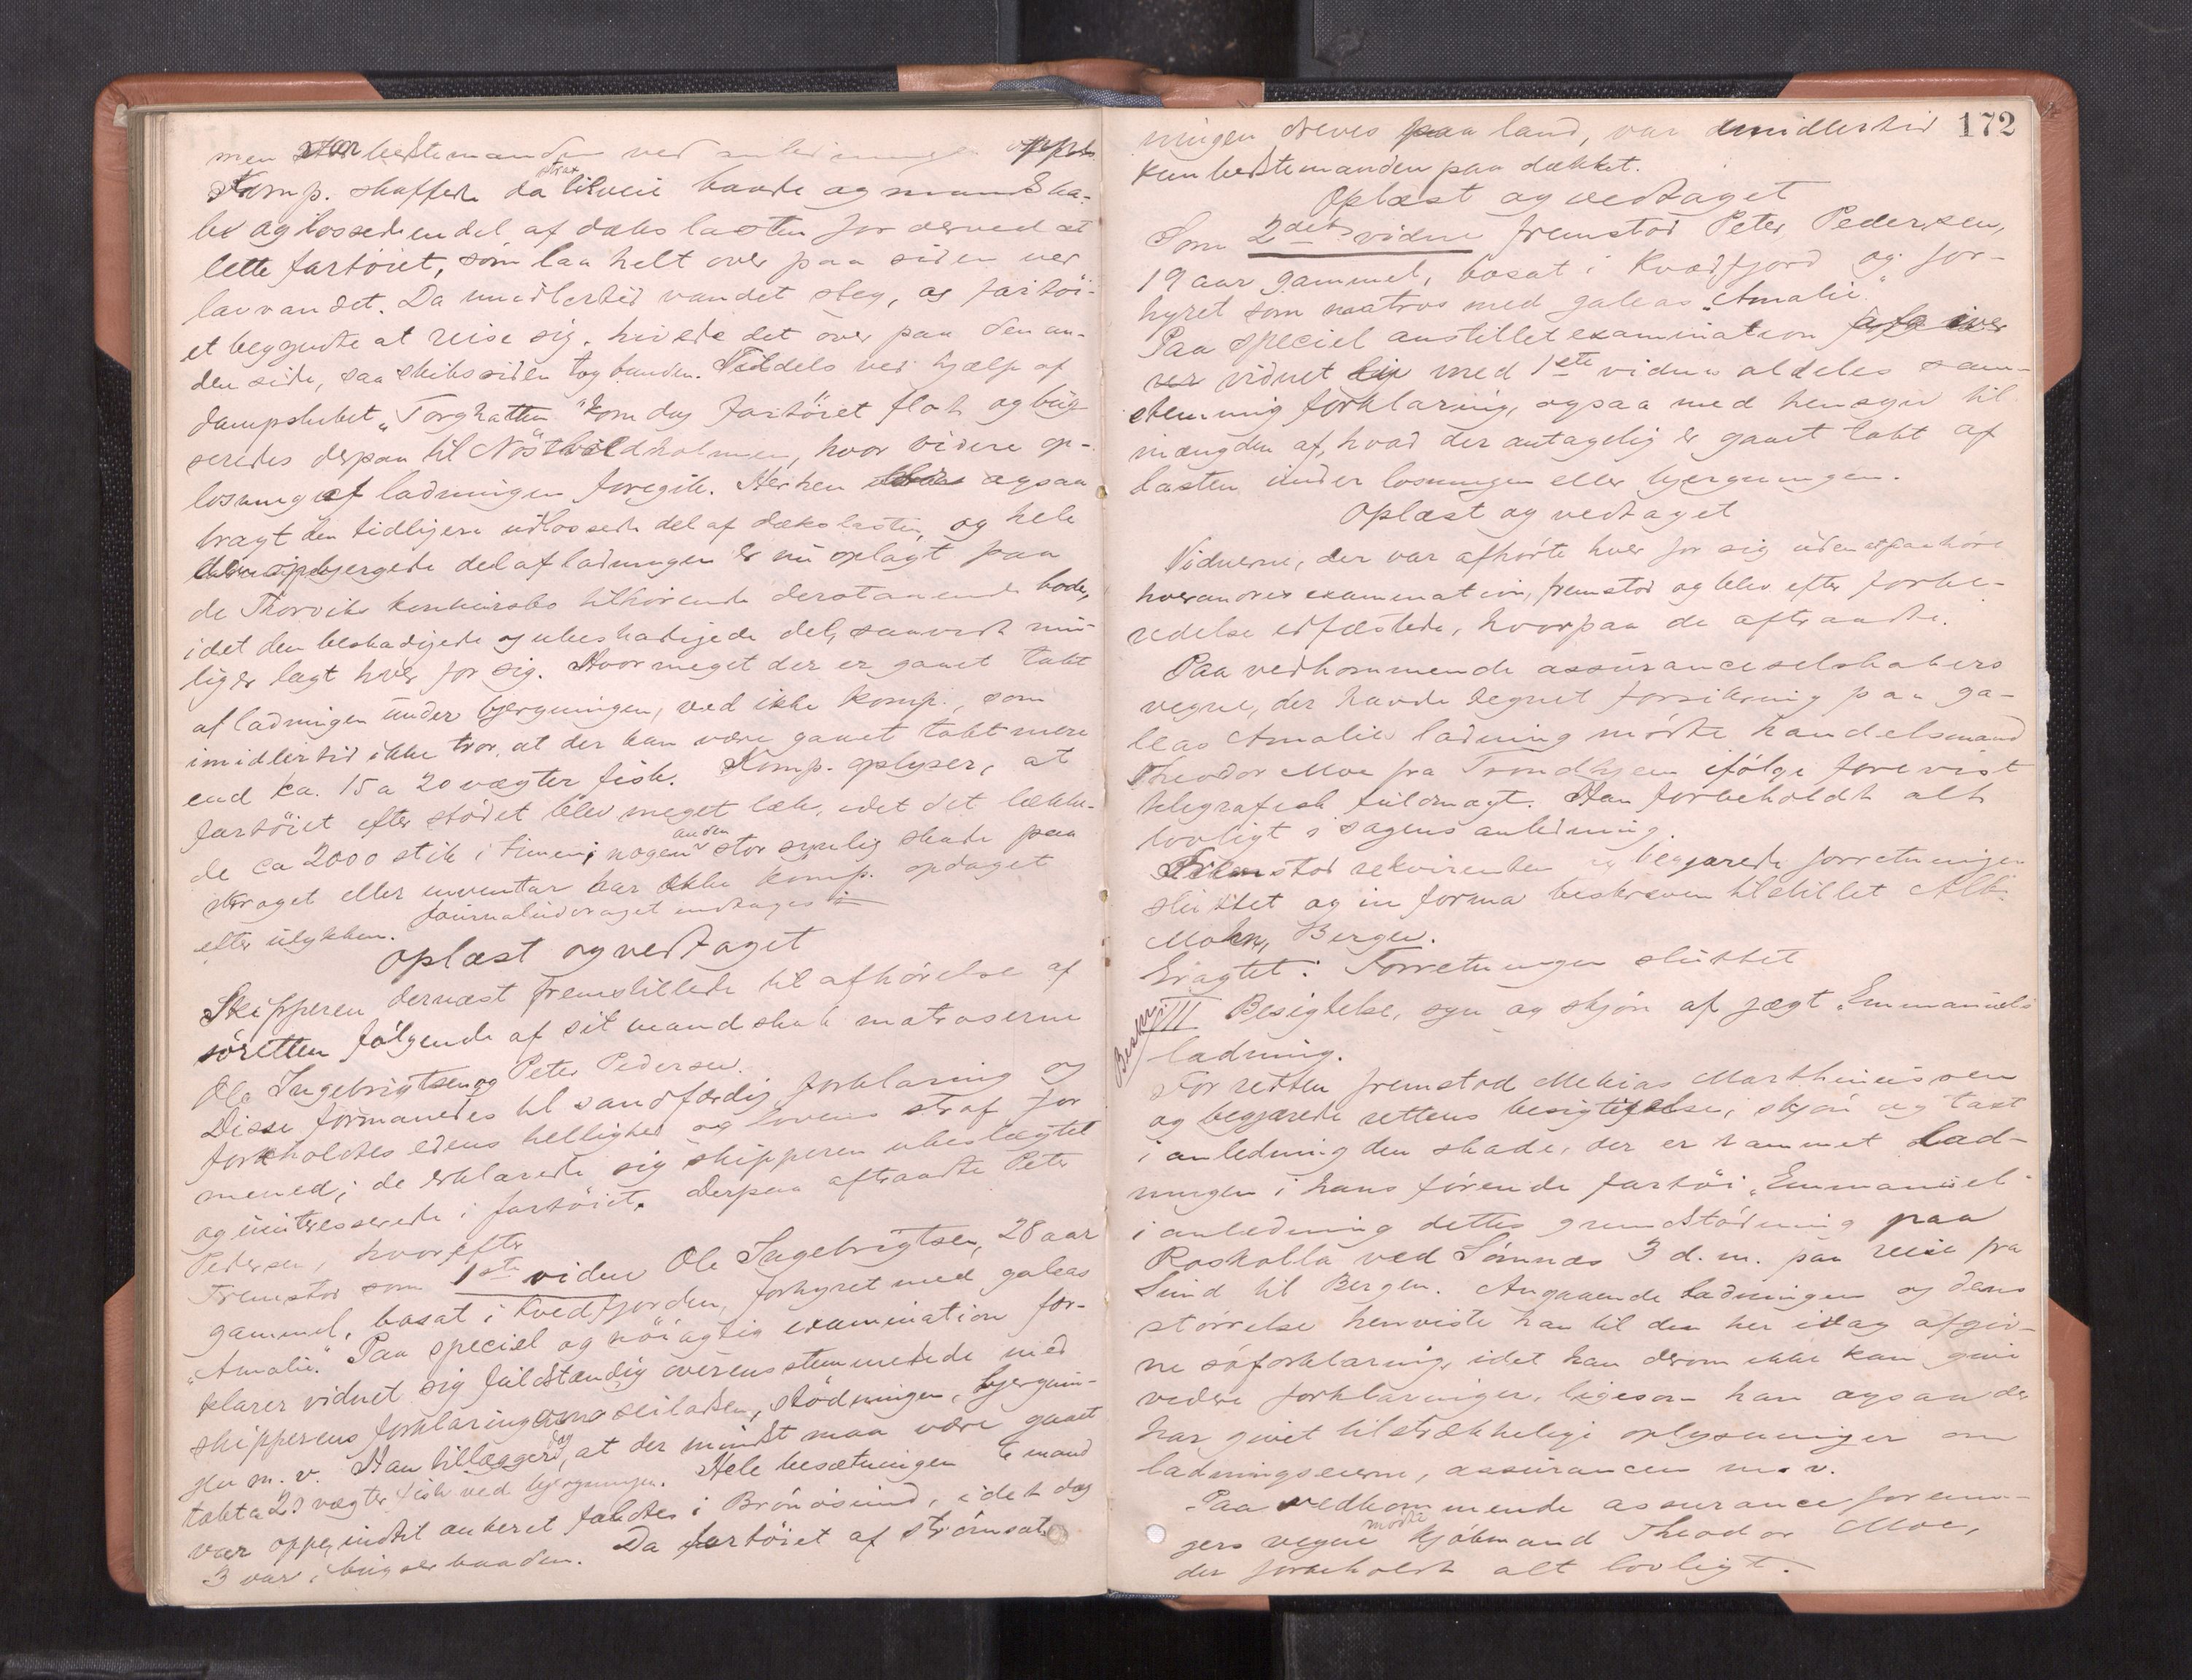 men bestemanden ved
Komp. skaffede da strax tilveie baade og mandska-
be og lossede en del af dæks lasten for derved at
lette fartöiet, som laa helt over paa siden ved
lavvandet. Da imidlertid vandet steg, og fartöi-
et begyndte at reise sig, hivede det over paa den an-
den side, saa skibssiden tog bunden. Tildels ved hjælp af
dampskibet "Torghatten" kom dog fartöiet flot og bug-
seredes derpaa til , hvor videre op-
losning af ladningen foregik. Herhen ogsaa
bragt den tidligere udlossede del af dækslasten, og hele
den opbjergede del af ladningen er nu oplagt paa
de Thorviks konkursbo tilhörende derstaaende bode,
idet den beskadigede og ubeskadigede del, saavidt mu-
lig er lagt hver for sig. Hvormeget der er gaaet tabt
af ladningen under bjergningen, ved ikke komp., som
imidlertid ikke tror, at der kan være gaaet tabt mere
end ca. 15 a 20 vægter fisk. Komp. oplyser, at
fartöiet efter stödet blev meget læk, idet det lække-
de ca 2000 stik i timen; nogen anden stor synlig skade paa
skroget eller inventar har ikke komp. opdaget
efter ulykken. Journaludraget indtages
Oplæst og vedtaget
Skipperen dernæst fremstillede til afhörelse af
söretten fölgende af sit mandskab matroserne
Ole Ingebrigtsen og Peter Pedersen.
Disse formanedes til sandfærdig forklaring og
forholdtes edens hellighed og lovens straf for
mened; de erklærede sig skipperen ubeslægtet
og uinteresserede i fartöiet. Derpaa aftraadte Peter
Pedersen, hvorefter
Fremstod som 1ste vidne Ole Ingebrigtsen, 28 aar
gammel, bosat i Kvedfjorden, forhyret med galeas
"Amalie." Paa speciel og nöiagtig examination for-
klarer vidnet sig fuldstændig overensstemmende med
skipperens forklaring om seiladsen, stödningen, bjergnin-
gen m. v. Han tillægger dog, at der mindst maa være gaaet
tabt a 20 vægter fisk ved bjergningen. Hele besætningen mand
var oppe, indtil ankeret faldtes i Brönösund, idet dog
3 var i bugserbaaden. Da fartöiet af strömsat
172
ningen dreves paa land, var imidlertid
kun bestemanden paa dækket.
Oplæst og vedtaget
Som 2det vidne fremstod Peter Pedersen,
19 aar gammel, bosat i Kvadfjord og for-
hyret som matros med galeas "Amalie."
Paa speciel anstillet examination
vidnet med 1ste vidne aldeles sam-
stemmig forklaring, ogsaa med hensyn til
mængden af, hvad der antagelig er gaaet tabt af
lasten under losningen eller bjergningen.
Oplæst og vedtaget
Vidnerne, der var afhörte hver for sig uden at paahöre
hverandres examination, fremstod og blev efter forbe-
redelse edfæstede, hvorpaa de aftraadte.
Paa vedkommende assuranceselskabers
vegne, der havde tegnet forsikring paa ga-
leas Amalies ladning mödte handelsmand
Theodor Moe fra Trondhjem ifölge forevist
telegrafisk fuldmagt. Han forbeholdt alt
lovligt i sagens anledning.
Fremstod rekvirenten og begjærede forretningen
sluttet og in forma beskreven tilstillet Alb.
Mohn, Bergen.
Eragtet: Forretningen sluttet
Beskr.
III Besigtelse, syn og skjön af jægt "Emmanuels"
ladning.
For retten fremstod Mekias Marthinussen
og begjærede rettens besigtigelse, skjön og taxt
i anledning den skade, der er rammet lad-
ningen i hans förende fartöi "Emmanuel"
i anledning dettes grundstödning paa
Roskolla ved Sömnæs 3 d. m. paa reise fra
Sund til Bergen. Angaaende ladningen og dens
störrelse henviste han til den her idag afgiv-
ne söforklaring, idet han derom ikke kan give
videre forklaringer, ligesom han ogsaa der
har givet tilstrækkelige oplysninger om
ladningseierne, assurancen m. v.
Paa vedkommende assurance forenin-
gers vegne mödte kjöbmand Theodor Moe,
der forbeholdt alt lovligt.